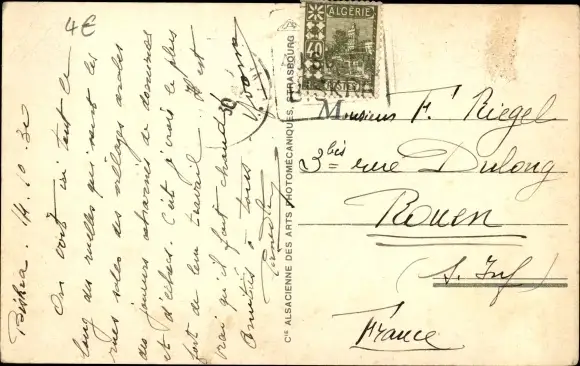 4€
Biskra. 14.10.30
On voit ici tout le
long des ruelles qui sont les
mes sales des villages arabes
des janvier acharnés de dominos
et d'échecs. C'est, je crois le plus
fort de leur travail. Il est
vrai qu'il fait chaud!
Amitiés à tous
ALGÉRIE
40
POSTES
Monsieur F. Riegel
3bis rue Dulong
Rouen
(S. Inf)
France
Cie ALSACIENNE DES ARTS PHOTOMÉCANIQUES, STRASBOURG